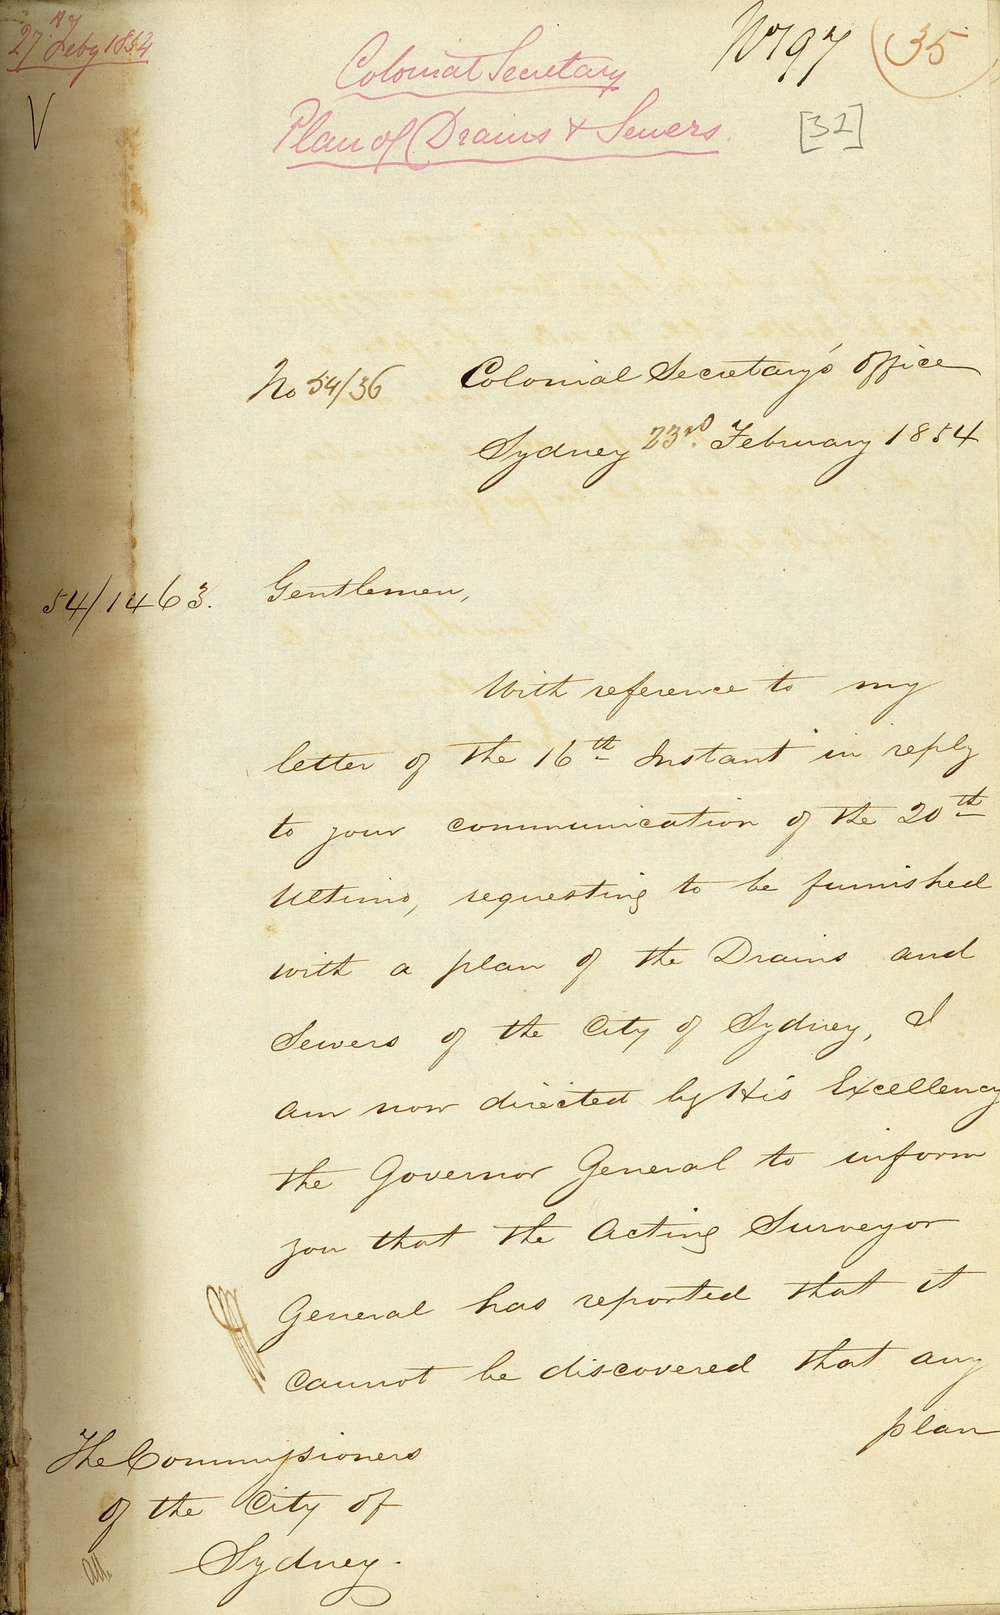 27 Feby 1854
No 197
35
Colonial Secretary
Plan of Drains & Sewers.
[32]
V
No 54/36 Colonial Secretary's Office
Sydney 23rd. February 1854
54/1463.
Gentlemen,
With reference to my
letter of the 16th Instant in reply
to your communication of the 20th
Ultimo, requesting to be furnished
with a plan of the Drains and
Sewers of the City of Sydney, I
am now directed by His Excellency
the Governor General to inform
you that the Acting Surveyor
General has reported that it
cannot be discovered that any
plan
The Commissioners
of the City of
Sydney.